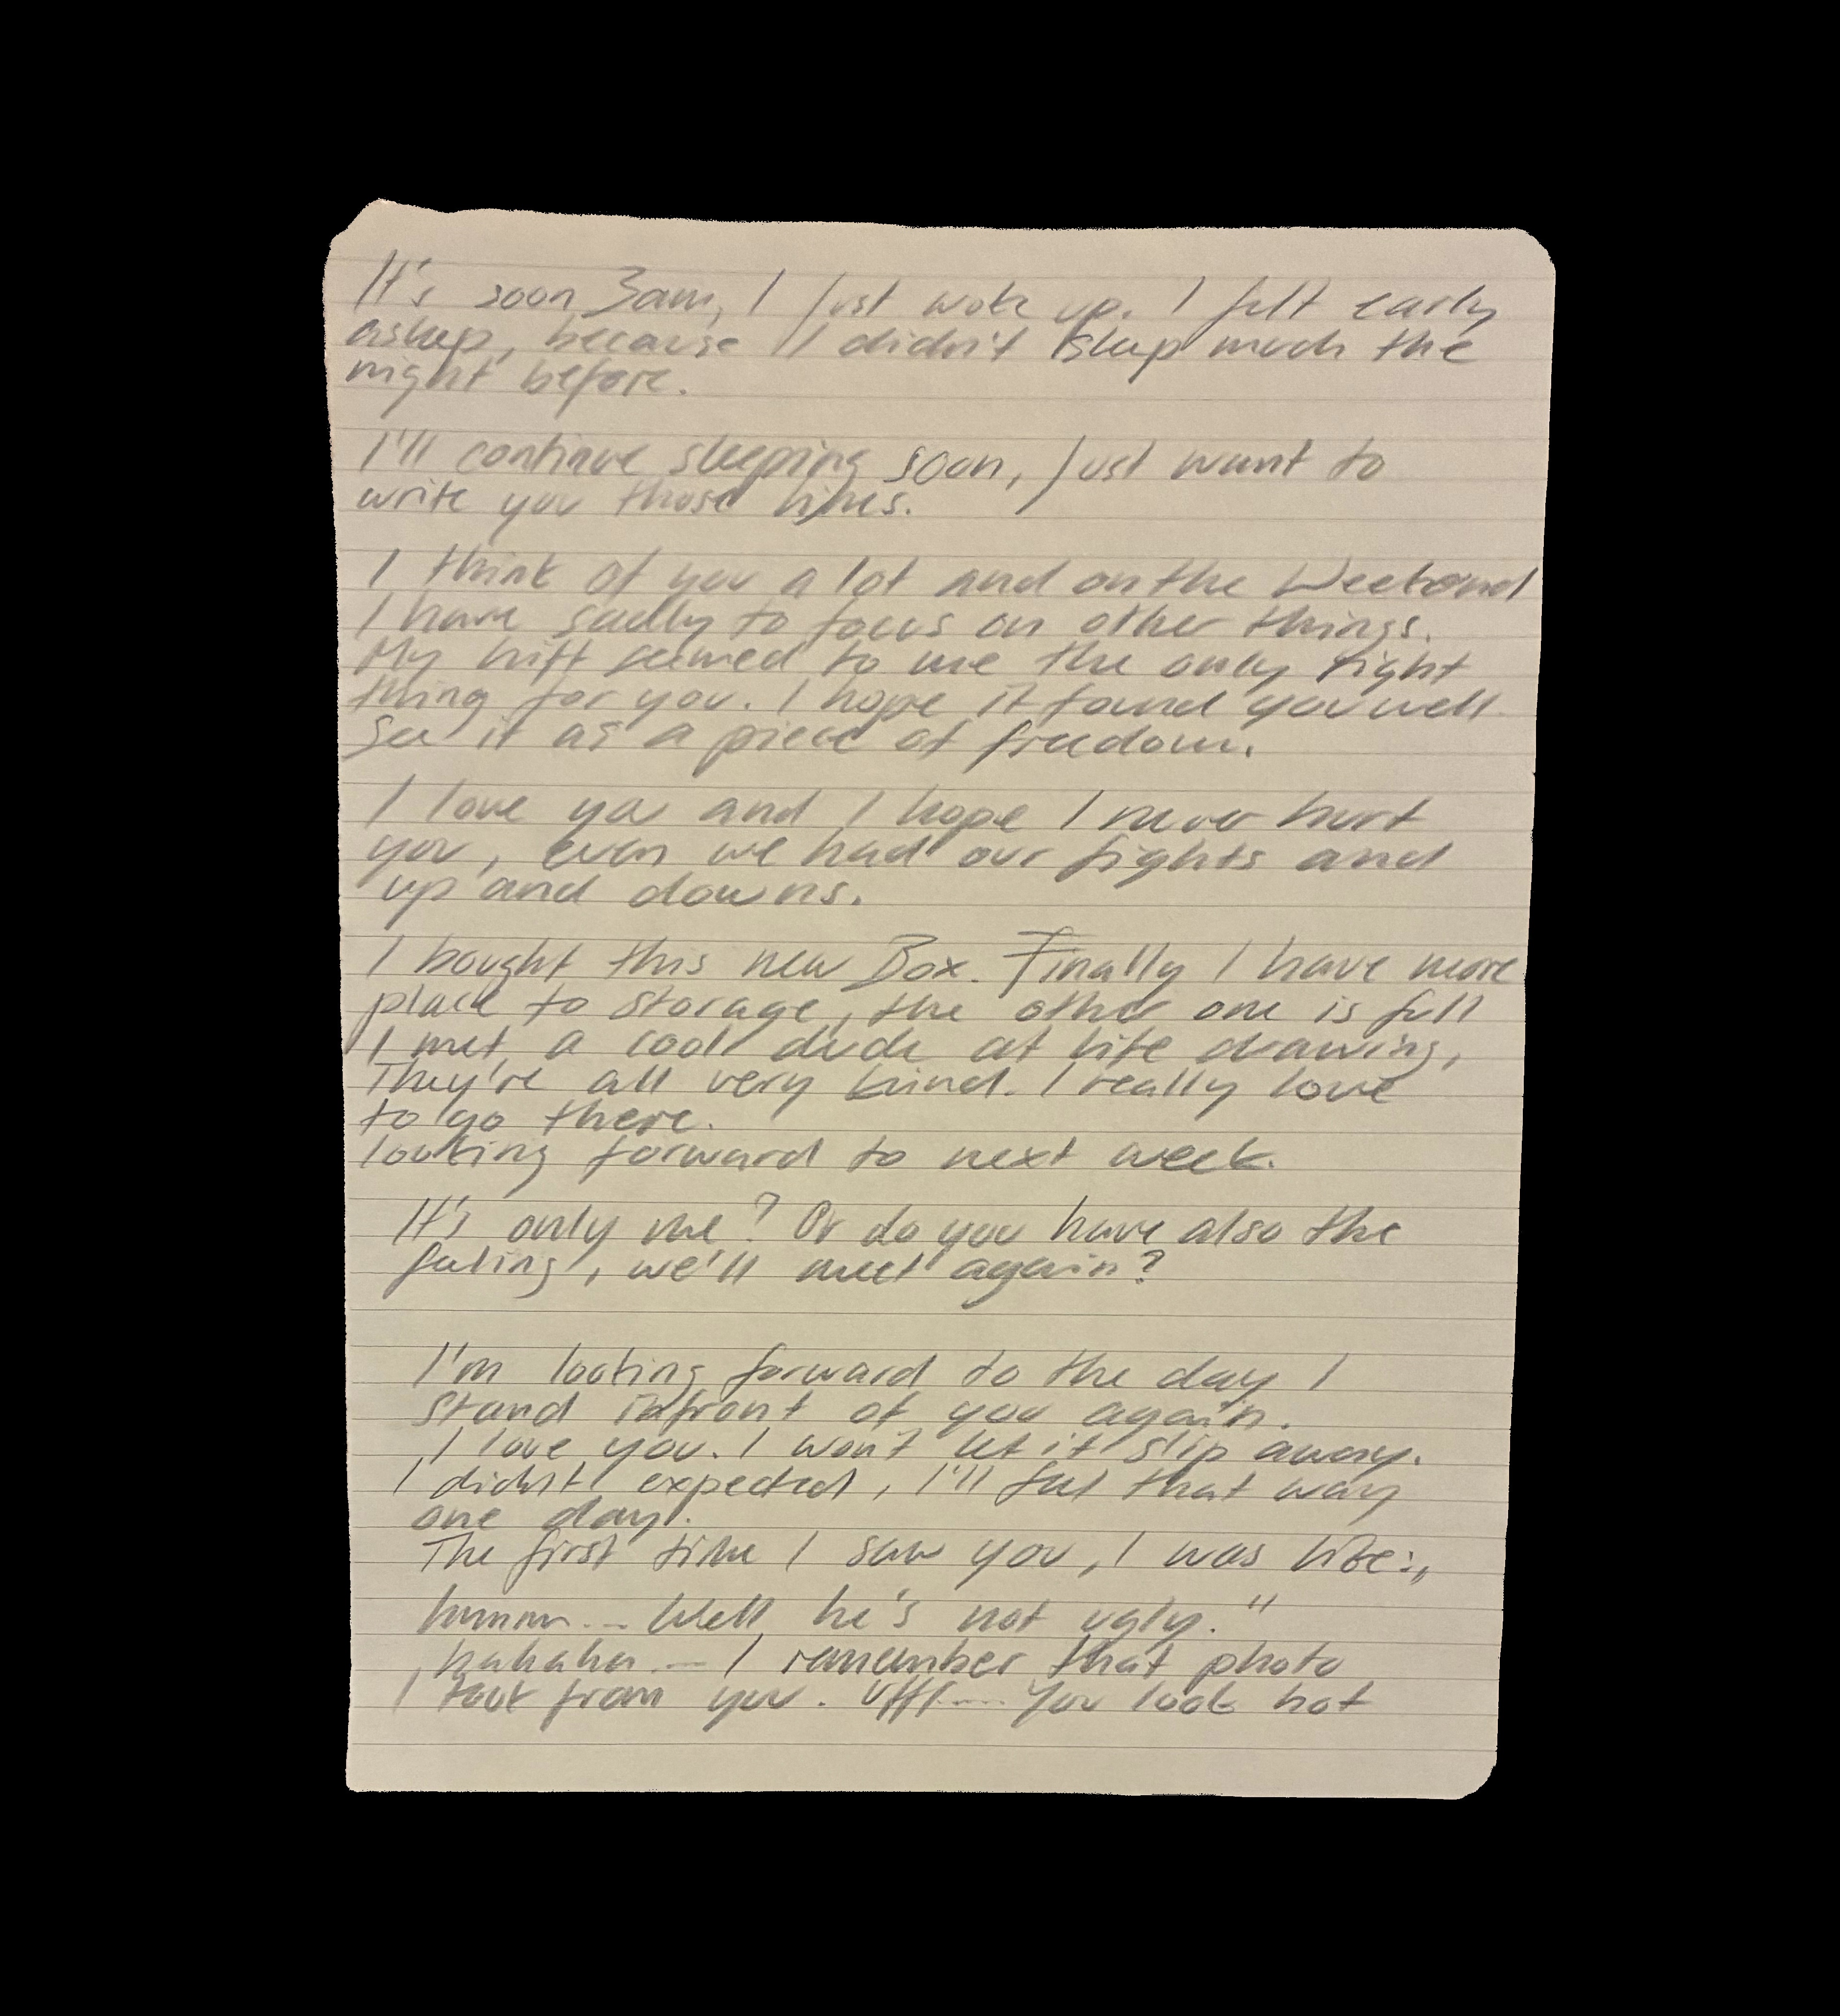 It's soon 3am, I just woke up. I felt early
asleep, because I didn't sleep much the
night before.
I'll continue sleeping soon, just want to
write you those lines.
I think of you a lot and on the Weekend
I have sadly to focus on other things.
My seemed to me the only right
thing for you. I hope it found you well
See it as a piece of freedom.
I love you and I hope I never hurt
you, even we had our fights and
up and downs.
I bought this new Box. Finally I have more
place to storage, the other one is full
I met a cool dude at life drawing,
They're all very kind. I really love
to go there.
looking forward to next week.
It's only me? Or do you have also the
feeling, we'll meet again?
I'm looking forward to the day I
stand infront of you again.
I love you. I won't let it slip away.
I didn't expected, I'll feel that way
one day.
The first time I saw you, I was like:„
hmmm... Well, he's not ugly."
hahaha... I remember that photo
I took from you. Uff.... You look hot